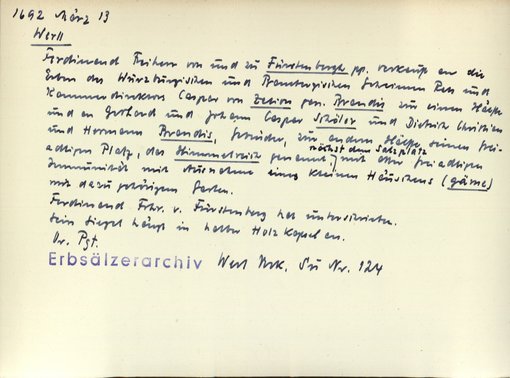 1692 März 13
Werl
Ferdinand Freiherr von und zu Fürstenbergh pp. verkauft an die
Erben des Würzburgischen und Bambergischen Geheimen Rats und
Kammerdirektors Caspar von Zelion gen. Brandis zur einen Hälfte
und an Gerhard und Johann Caspar Schöler und Dietrich Christian
und Hermann Brandis, Gebrüder, zur andern Hälfte seinen frei
nächst dem Salzplatz
adligen Platz, das Himmelreich genannt, mit aller freiadligen
Immunität mit Ausnahme eines kleinen Häuschens (gäme)
mit dazu gehörigem Garten.
Ferdinand Frhr. v. Fürstenberg hat unterschrieben.
Sein Siegel hängt in halber Holzkapsel an.
Or. Pgt.
Erbsälzerarchiv Werl Urk. Nr. 124